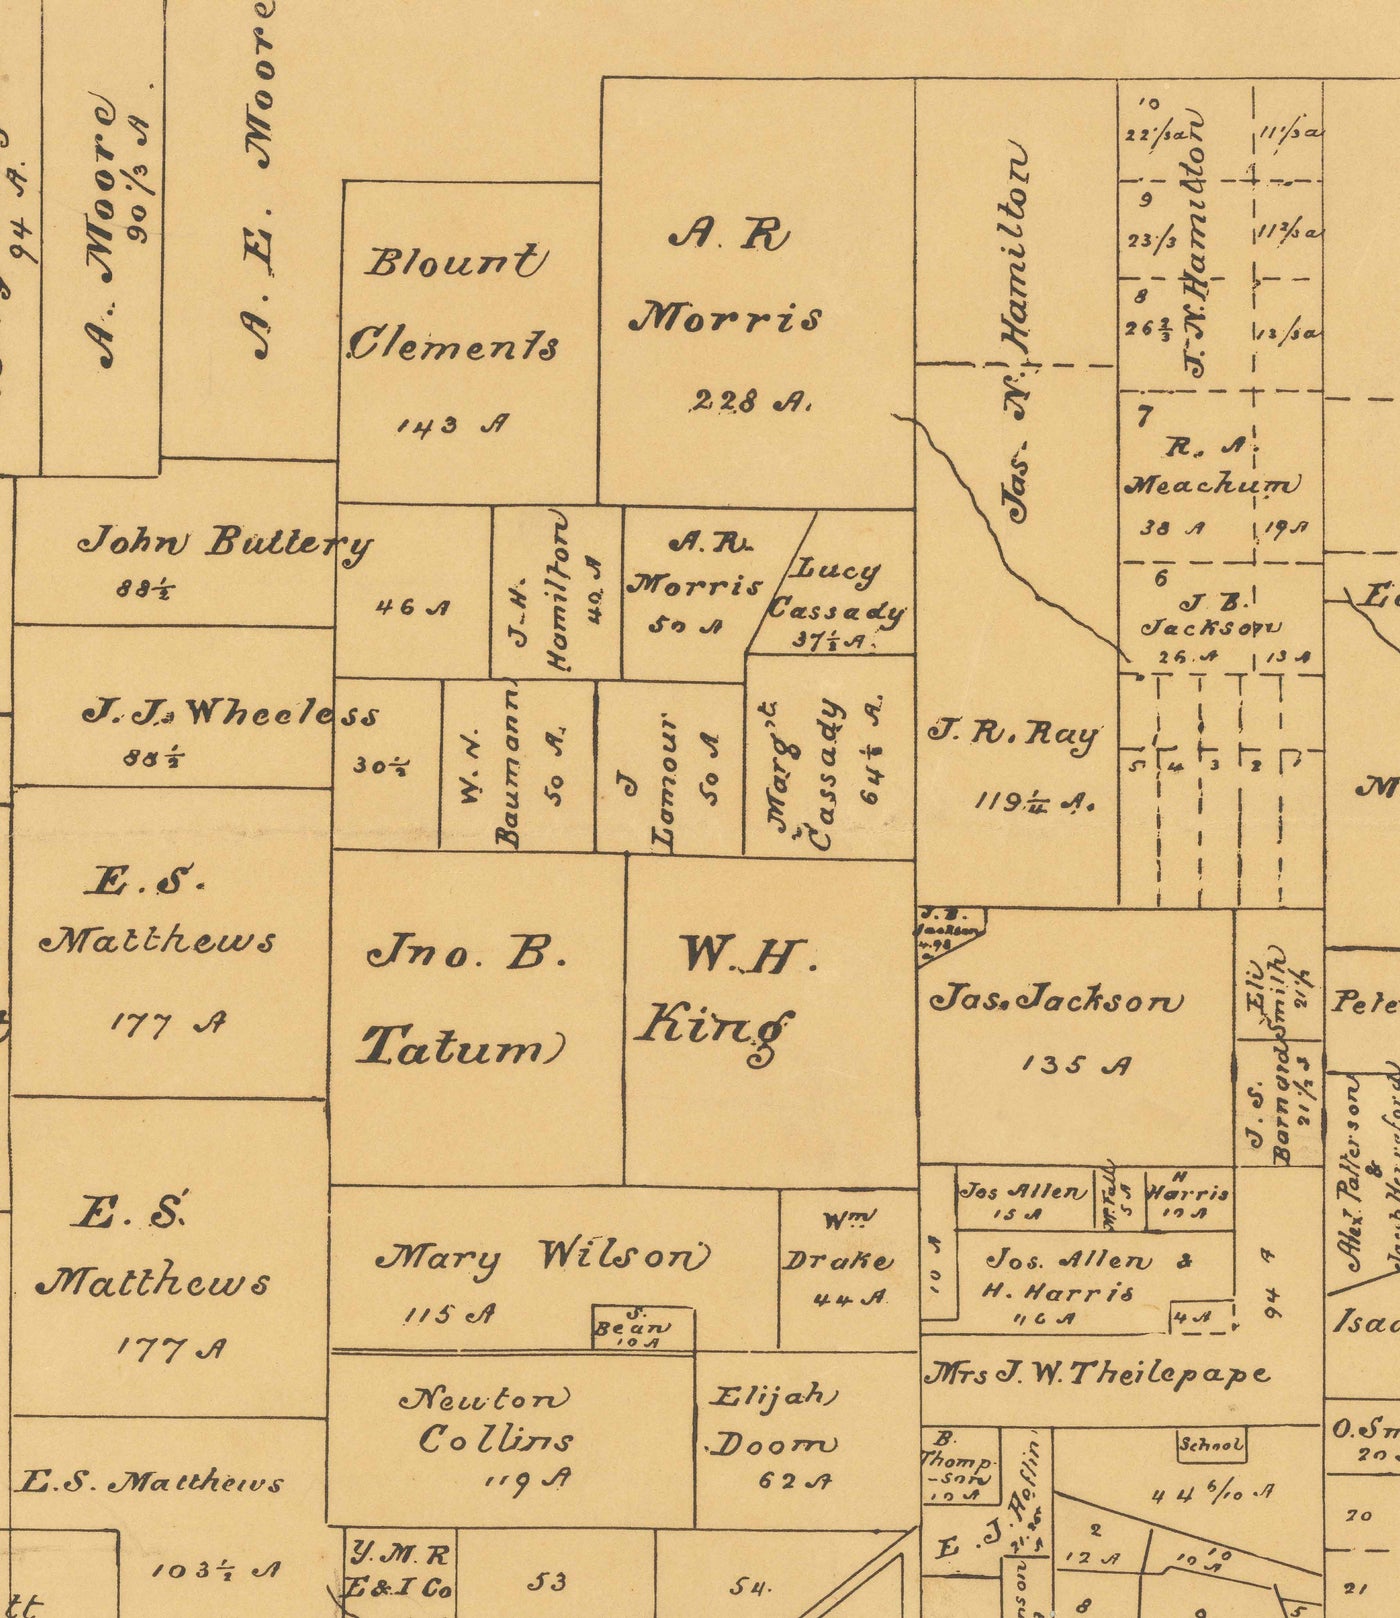 94 A.
A. Moore
90 1/3 A.
A. E. Moore
Blount
Clements
143 A
A. R
Morris
228 A.
Jas. N. Hamilton
J. N. Hamilton
10
22 1/3 a
11 1/3 a
9
23 1/3
11 2/3 a
8
26 2/3
13 1/3 a
7
R. A.
Meachum
38 A
19 A
6
J B.
Jackson
26 A
13 A
5
4
3
2
1
John Buttery
88 1/2
46 A
J. H.
Hamilton
40 A
A. R.
Morris
50 A
Lucy
Cassady
37 1/2 A.
J. J. Wheeless
88 1/2
30 1/2
W. N.
Baumann
50 A.
J
Lomour
50 A
Marg't
Cassady
J. R. Ray
119 1/4 A.
E. S.
Matthews
177 A
Jno. B.
Tatum
W. H.
King
J. B.
Jackson
4.98
Jas. Jackson
135 A
Eli
Smith
21 1/2
J. S.
Barnard
21 1/2
Pete
Alex. Patterson
&
E. S.
Matthews
177 A
Mary Wilson
115 A
S.
Bean
10 A
Wm
Drake
44 A
10 A
Jos Allen
15 A
5 A
H
Harris
10 A
Jos. Allen &
H. Harris
116 A
4 A
94 A
Isaa
Mrs J. W. Theilepape
Newton
Collins
119 A
Elijah
Doom
62 A
E. S. Matthews
103 1/2 A
B.
Thomp
-son
10 A
E. J. Heflin
School
44 6/10 A
O. Sm
20
20
21
Y. M. R
E & I Co
53
54.
2
12 A
10
10 A
8
9
5
tt